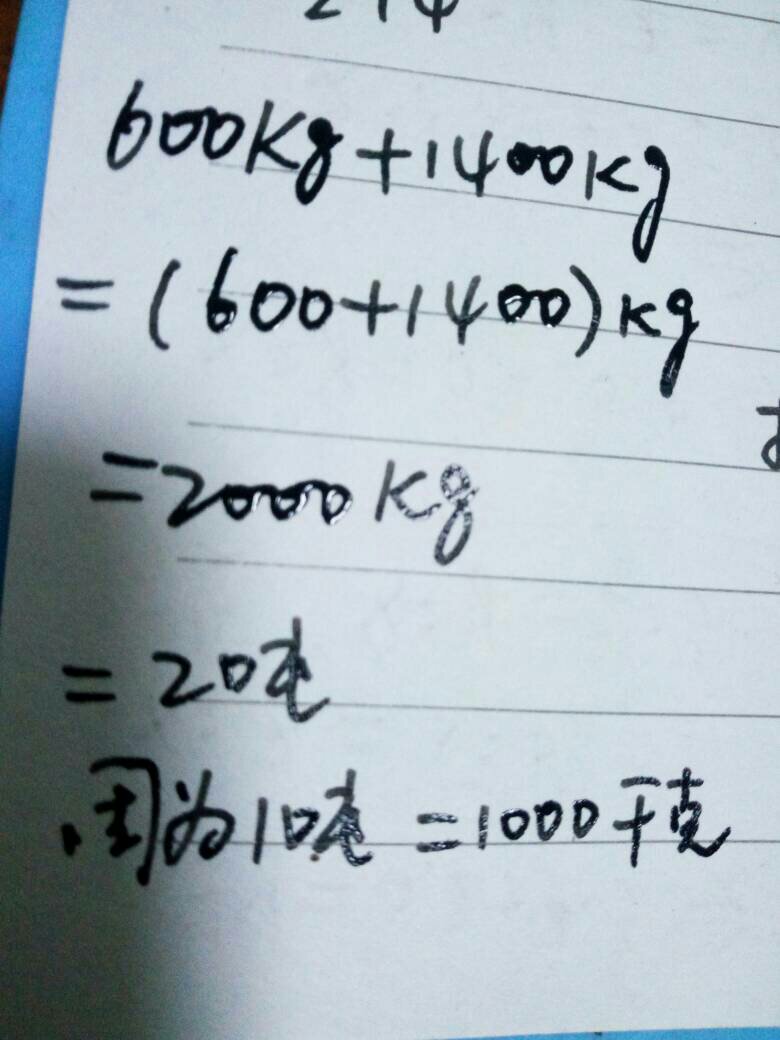 600Kg+1400Kg
=(600+1400)kg
=2000Kg
=20吨
因为10吨=1000千克